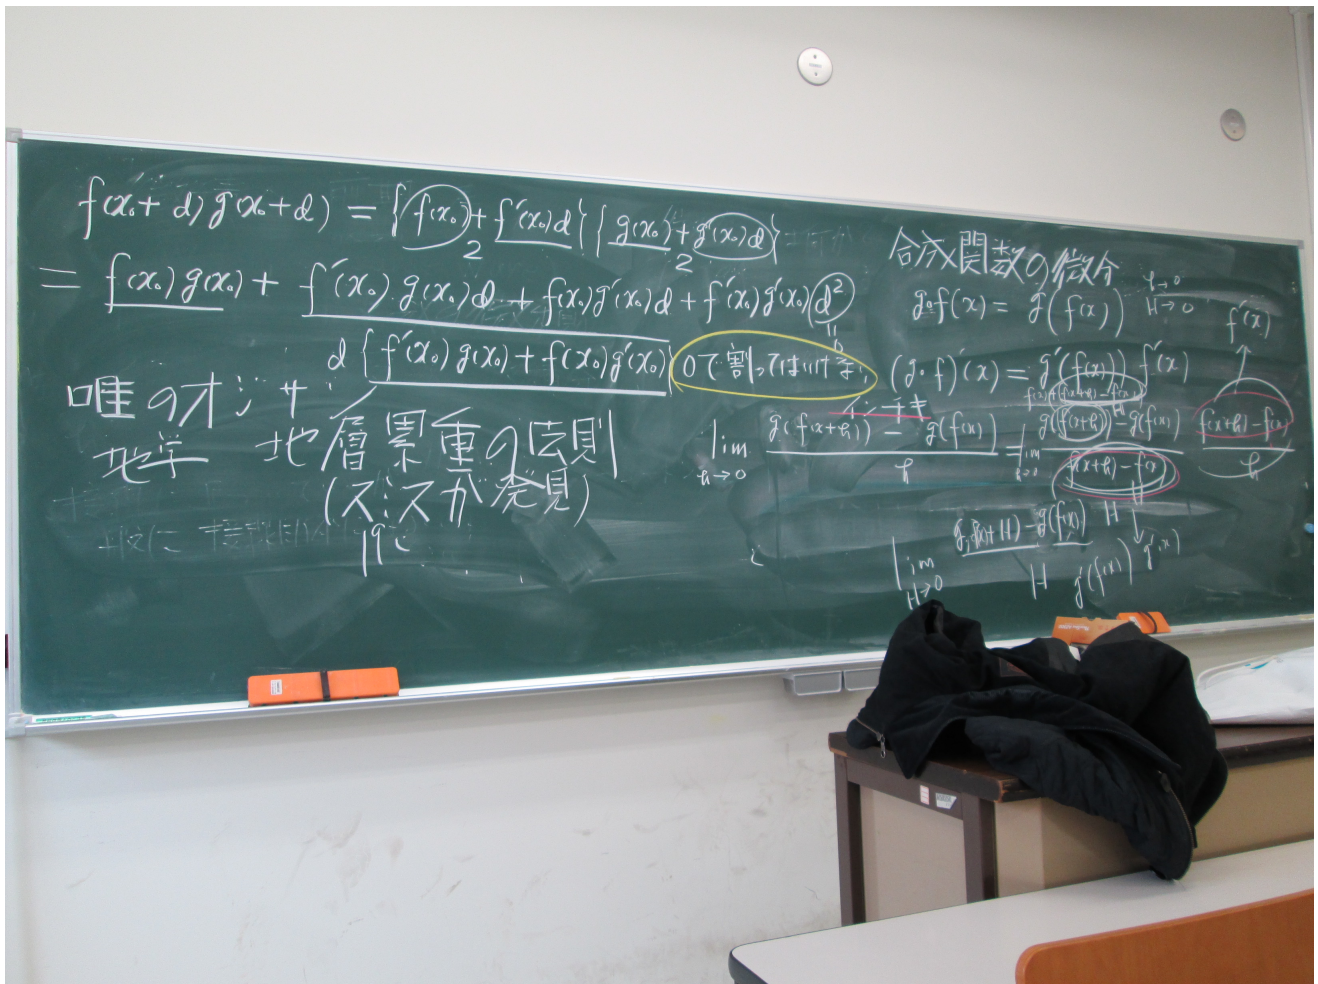 f(x₀+d)g(x₀+d) = {f(x₀)+f′(x₀)d}{g(x₀)+g′(x₀)d}
2 2
= f(x₀)g(x₀) + f′(x₀)g(x₀)d + f(x₀)g′(x₀)d + f′(x₀)g′(x₀)d²
d{f′(x₀)g(x₀)+f(x₀)g′(x₀)} 0で割ってはいけない
唯のオジサン
地学 地層累重の法則
(スミスが発見)
19C
合成関数の微分
g∘f(x) = g(f(x))
h→0
H→0
f′(x)
(g∘f)′(x) = g′(f(x)) f′(x)
インチキ
lim h→0 g(f(x+h)) − g(f(x)) / h = lim h→0 g(f(x+h))−g(f(x)) / f(x+h)−f(x) f(x+h)−f(x) / h
H
lim H→0 g(f(x)+H)−g(f(x)) / H g′(f(x)) g′(x)